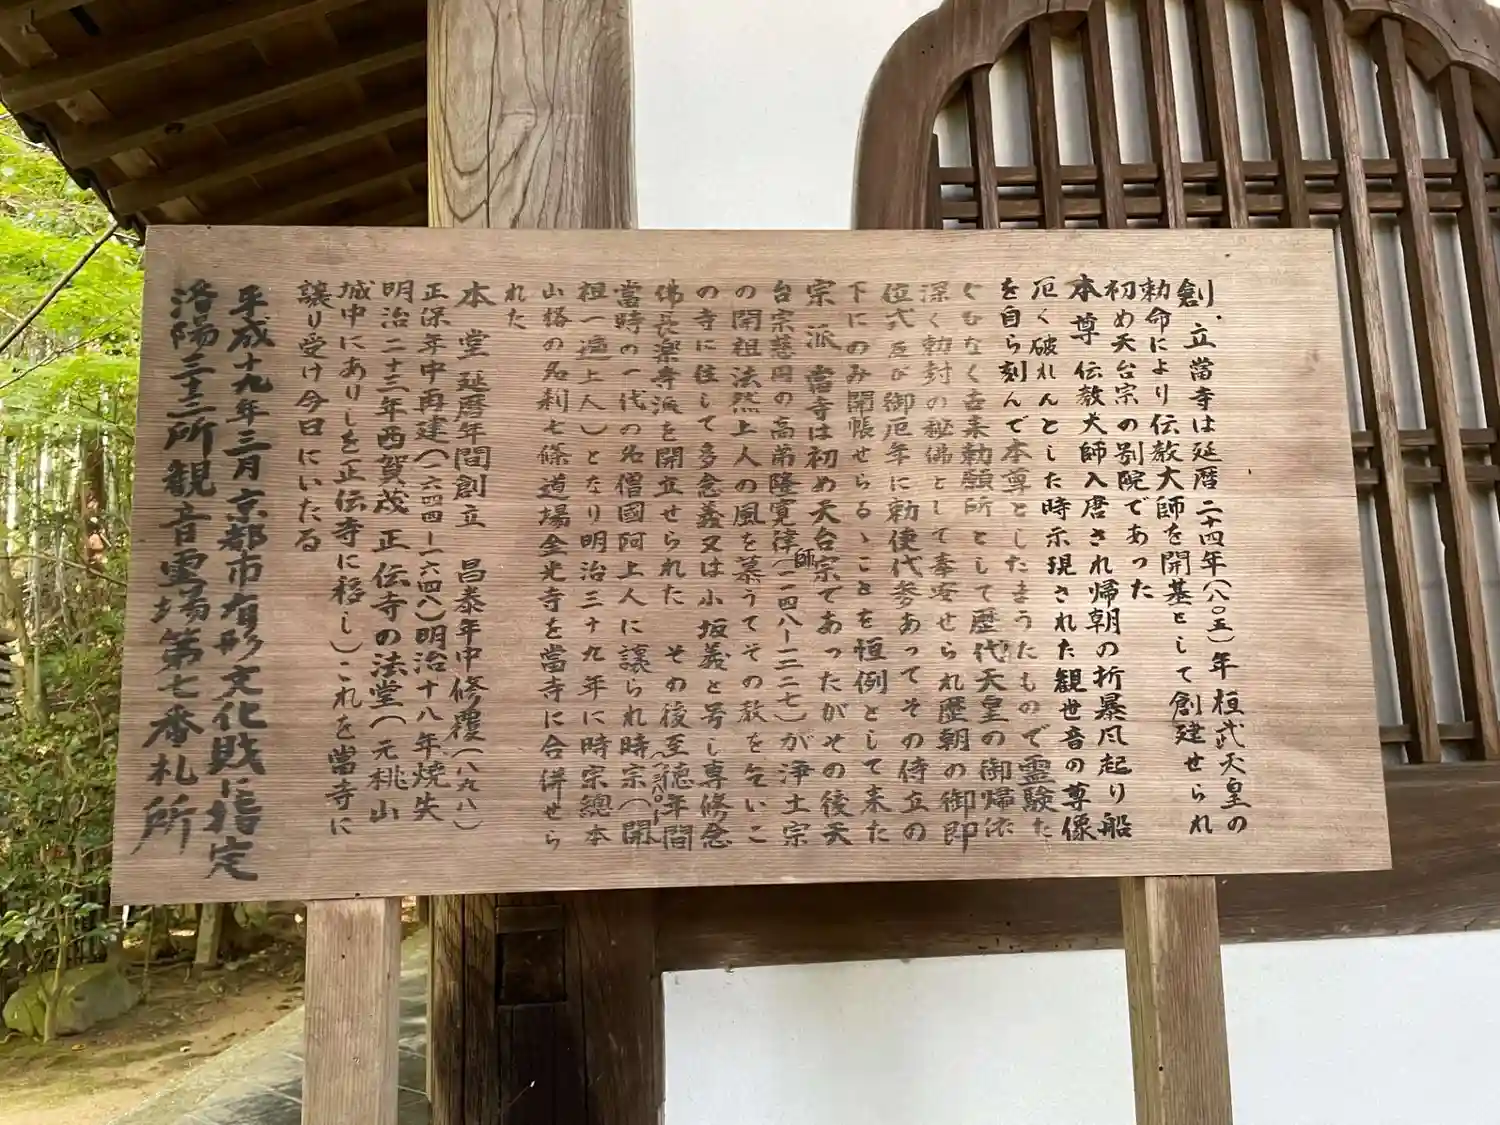 創 立 當寺は延暦二十四年(八〇五)年桓武天皇の
勅命により伝教大師を開基として創建せられ
初め天台宗の別院であった
本尊 伝教大師入唐され帰朝の折暴風起り船
厄く破れんとした時示現された観世音の尊像
を自ら刻んで本尊としたまうたもので霊験た
ぐひなく古来勅願所として歴代天皇の御帰依
深く勅封の秘佛として奉安せられ歴朝の御即
位式及び御厄年に勅使代参あってその侍立の
下にのみ開帳せらるゝことを恒例として来た
宗 派 當寺は初め天台宗であったがその後天
台宗慈円の高弟隆寛律師(一一四八ー一二二七)が浄土宗
の開祖法然上人の風を慕うてその教を乞いこ
の寺に住して多念義又は小坂義と号し専修念
佛長楽寺派を開立せられた その後至徳年間
當時の一代の名僧國阿上人に譲られ時宗(開
祖一遍上人)となり明治三十九年に時宗總本
山格の名刹七條道場金光寺を當寺に合併せら
れた
本 堂 延暦年間創立 昌泰年中修覆(八九八)
正保年中再建(一六四四ー一六四八)明治十八年焼失
明治二十三年西賀茂正伝寺の法堂(元桃山
城中にありしを正伝寺に移し)これを當寺に
譲り受け今日にいたる
平成十九年三月京都市有形文化財に指定
洛陽三十三所観音霊場第七番札所